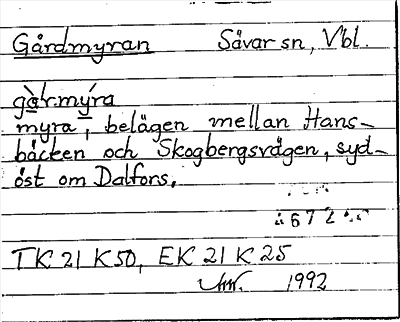 Gårdmyran Sävar sn, Vbl.
gàrmýra
myra, belägen mellan Hans-
bäcken och Skogbergsvägen, syd-
öst om Dalfors.
TK 21 K SO, EK 21 K 25
1992